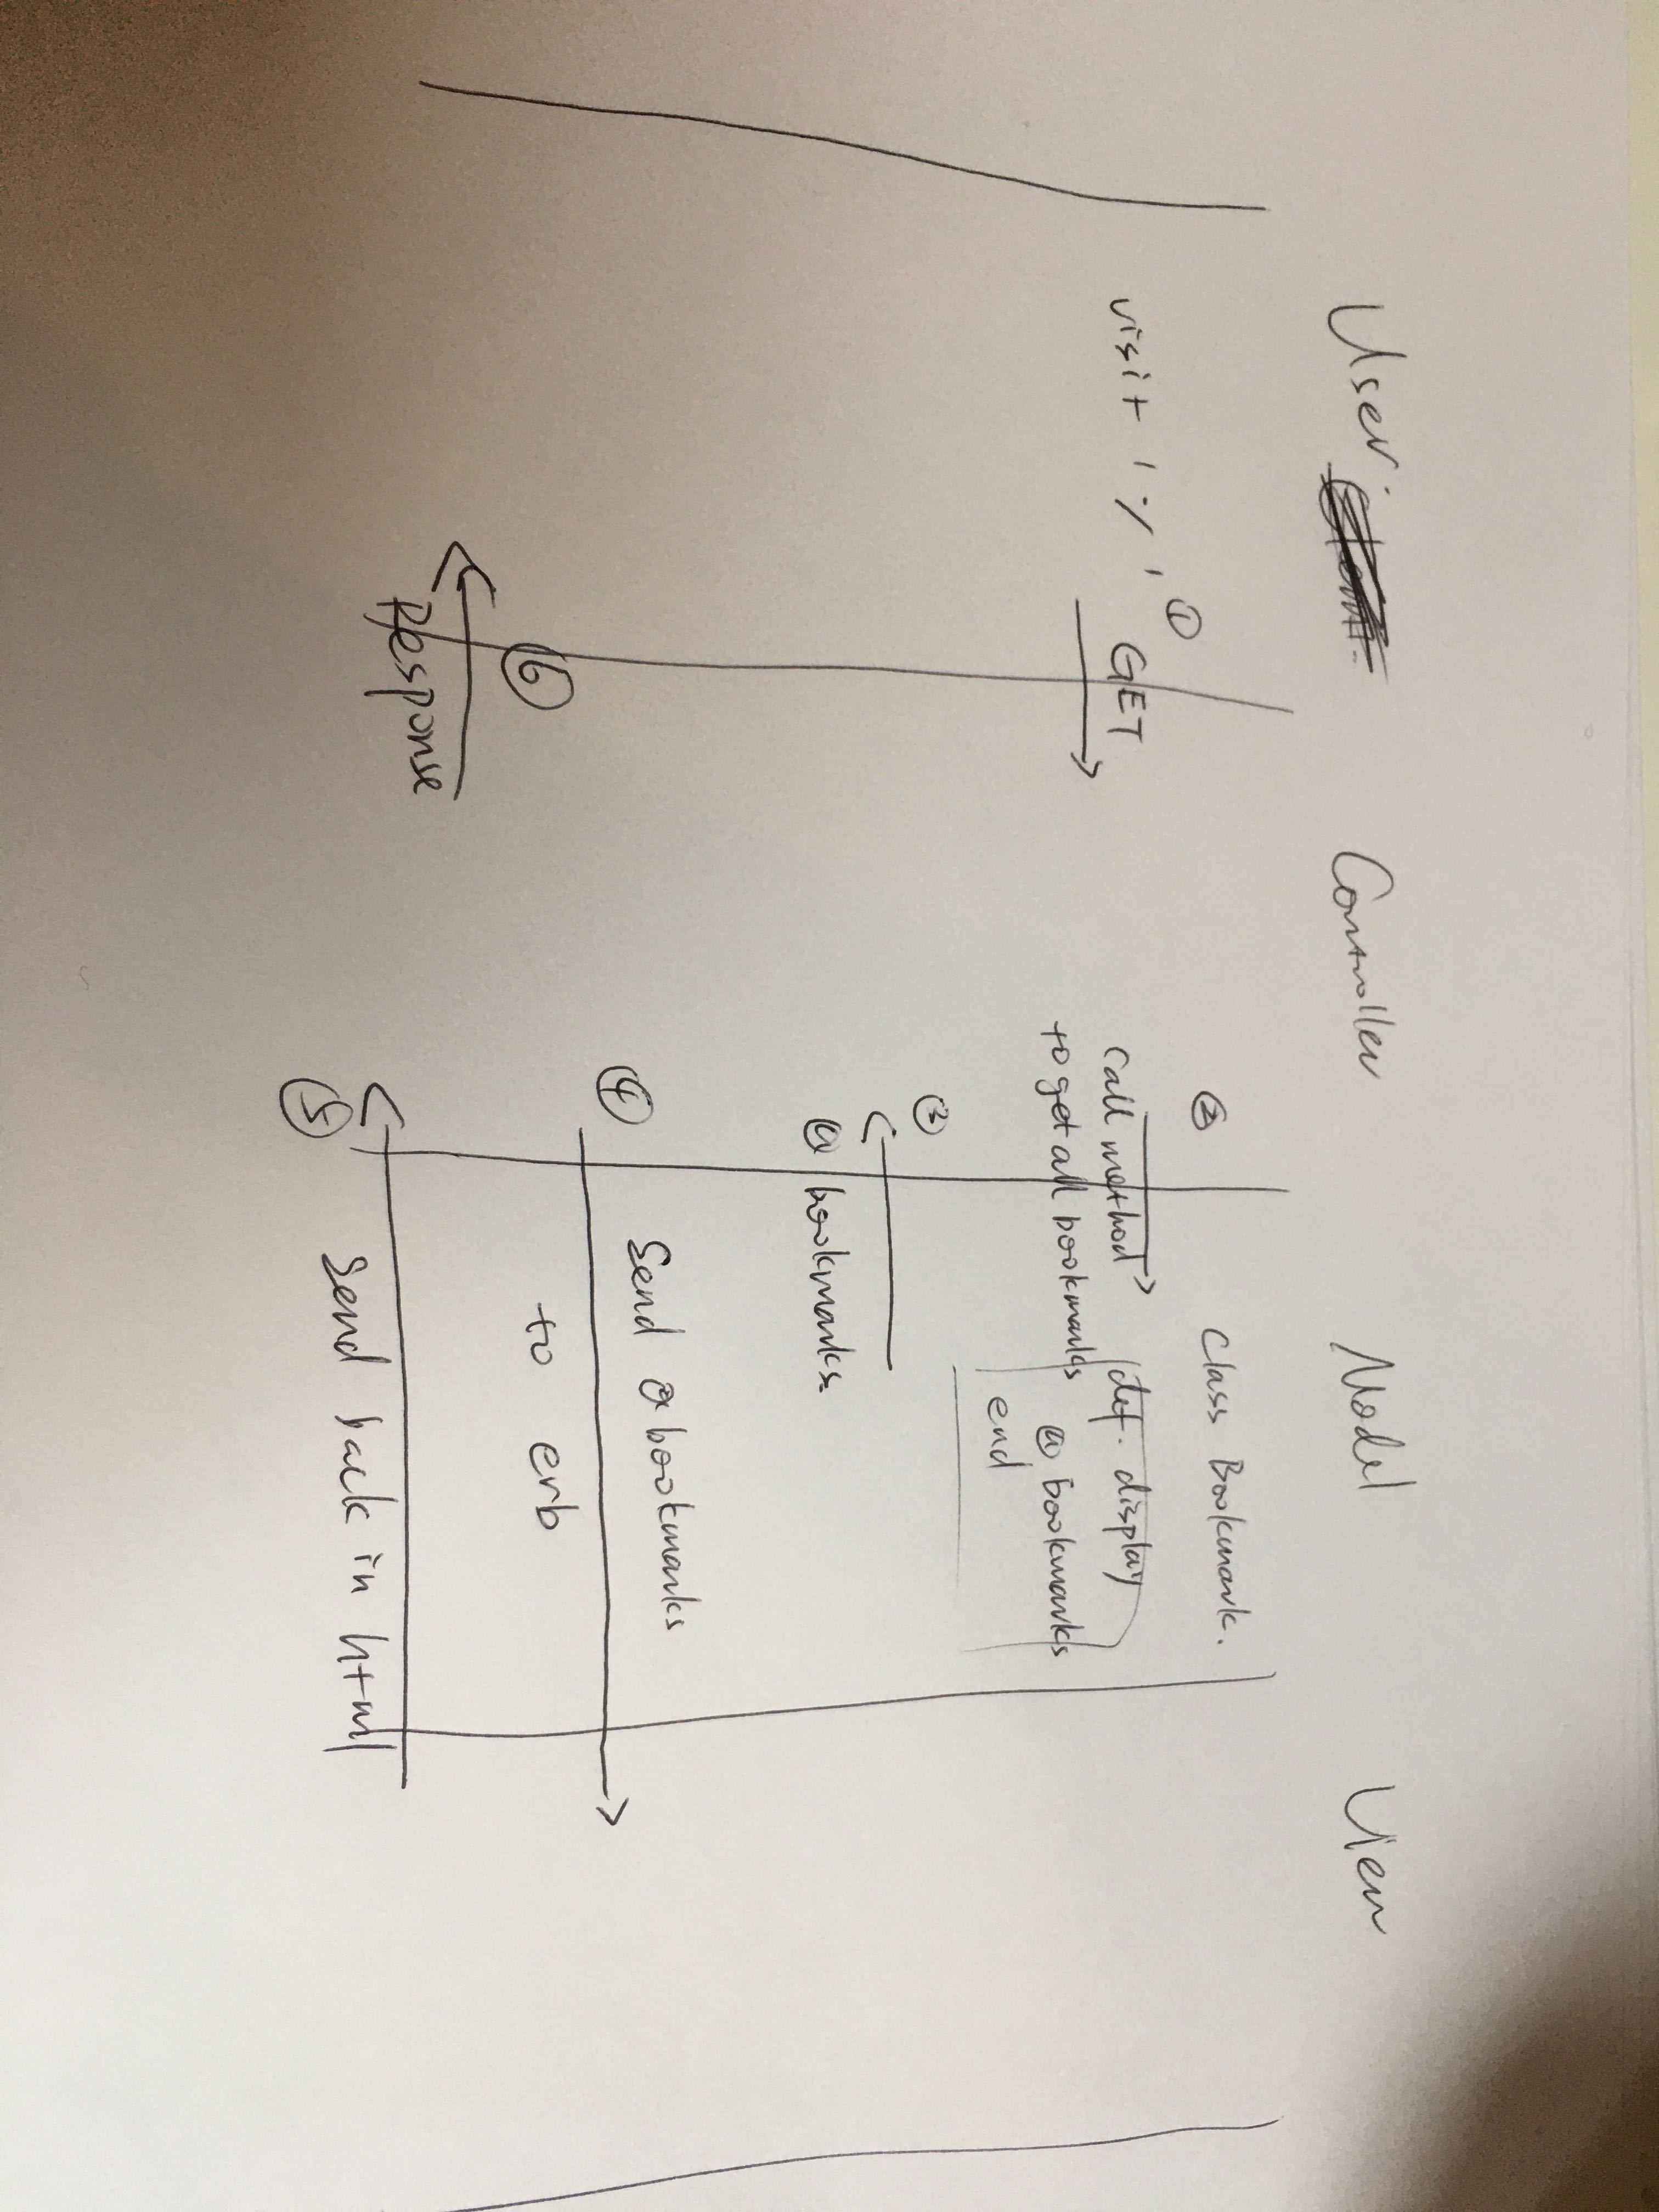 User.
Controller
Model
View
①
visit '/'
GET
②
Call method
to get all bookmarks
Class Bookmark.
def. display
@ bookmarks
end
③
@ bookmarks
④
Send @ bookmarks
to erb
⑤
Send back in html
⑥
Response